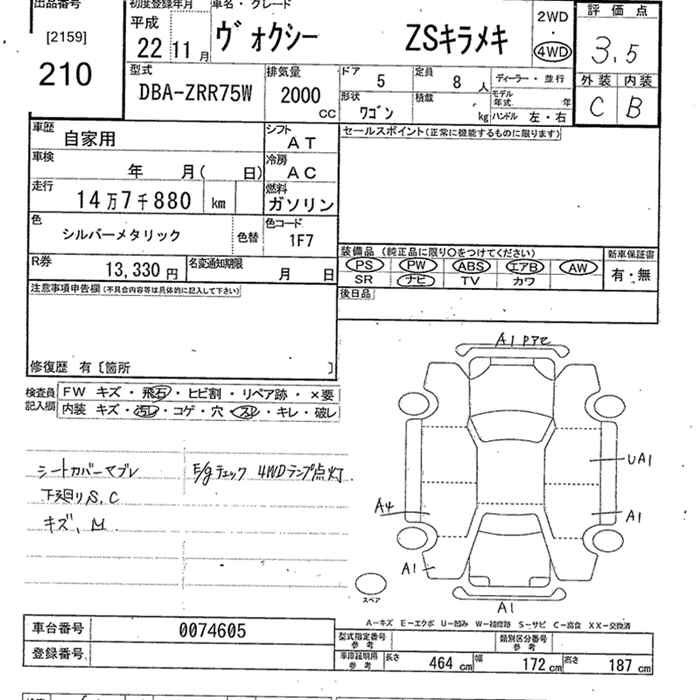 出品番号
[2159]
210
初度登録年月
平成
22 11 月
車名・グレード
ヴォクシー ZSキラメキ
2WD
・
4WD
評価点
3.5
外装 内装
C B
型式
DBA-ZRR75W
排気量
2000
CC
ドア 5
定員 8 人
ディーラー・並行
形状
ワゴン
積載
kg
モデル
年式 年
ハンドル 左・右
車歴
自家用
シフト
AT
セールスポイント(正常に機能するものに限ります)
車検
年 月( 日)
冷房
AC
走行
14万7千880 km
燃料
ガソリン
色
シルバーメタリック
色替
色コード
1F7
装備品 (純正品に限り○をつけてください)
新車保証書
PS PW ABS エアB AW
SR ナビ TV カワ
有・無
R券
13,330 円
名変通知期限
月 日
後日品
注意事項申告欄(不具合内容等は具体的に記入して下さい)
修復歴 有〔箇所 〕
検査員
記入欄
FW キズ・飛石・ヒビ割・リペア跡・×要
内装 キズ・汚レ・コゲ・穴・スレ・キレ・破レ
シートカバーヤブレ
下廻りS,C
キズ, M
E/gチェック 4WDランプ点灯
A1
UA1
A4
A1
A1
A1
スペア
A-キズ E-エクボ U-凹み W-補修跡 S-サビ C-腐食 XX-交換済
車台番号
0074605
登録番号
型式指定番号
参考
類別区分番号
参考
車庫証明用
参考
長さ 464 cm
幅 172 cm
高さ 187 cm